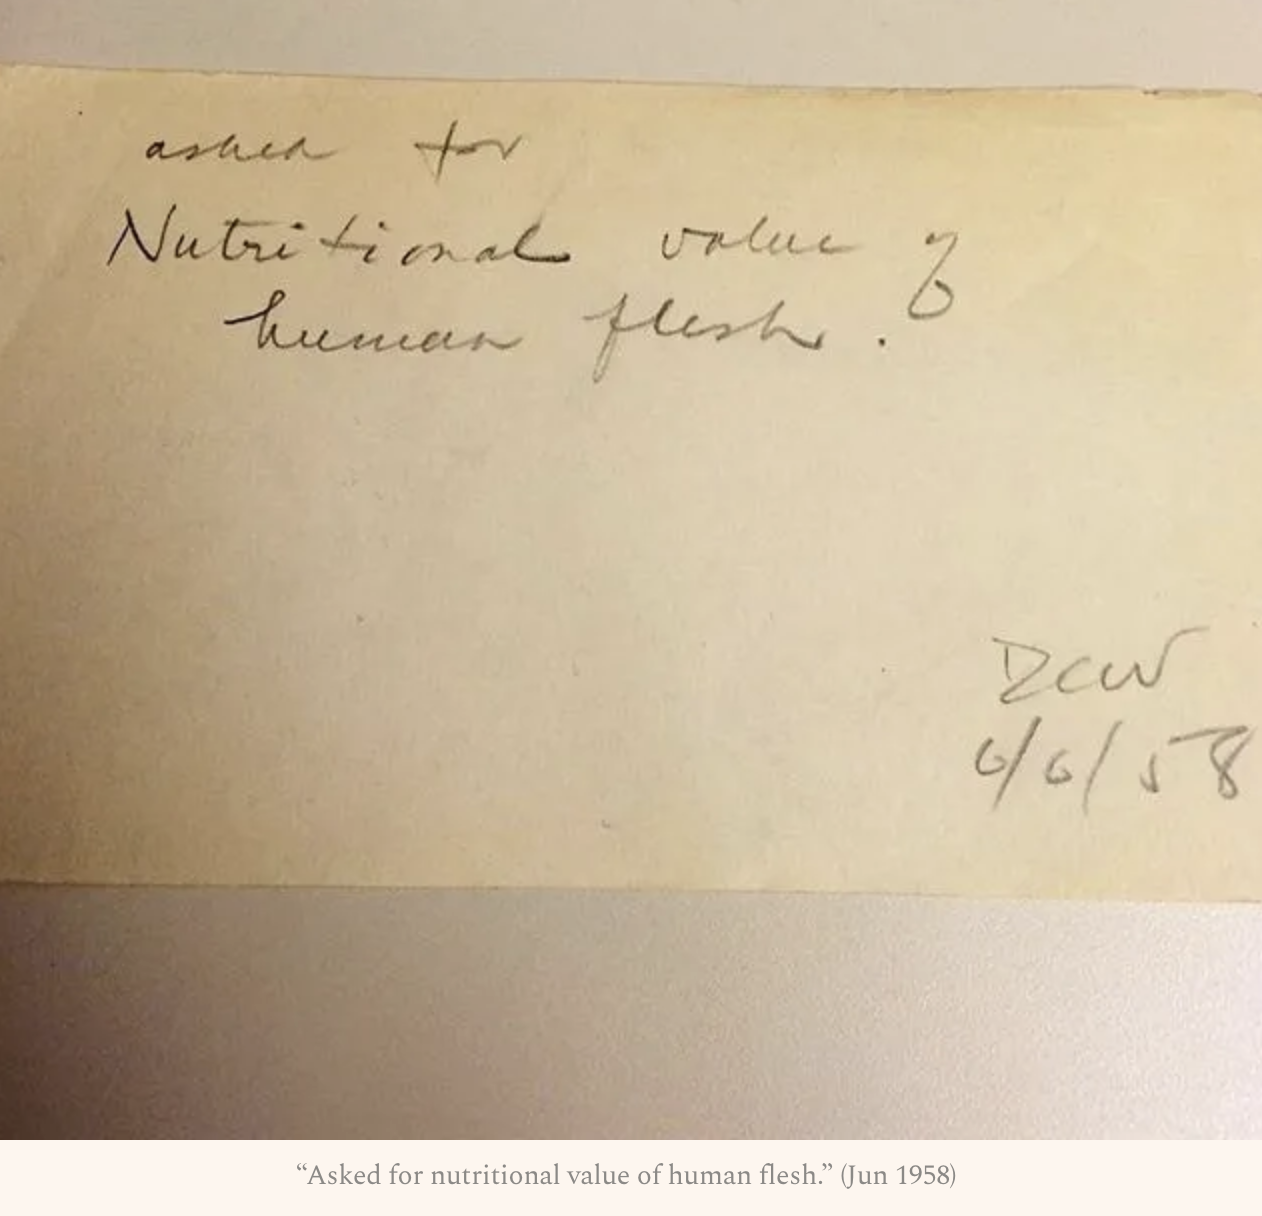 asked for
Nutritional value of
human flesh.
DCW
6/6/58
“Asked for nutritional value of human flesh.” (Jun 1958)